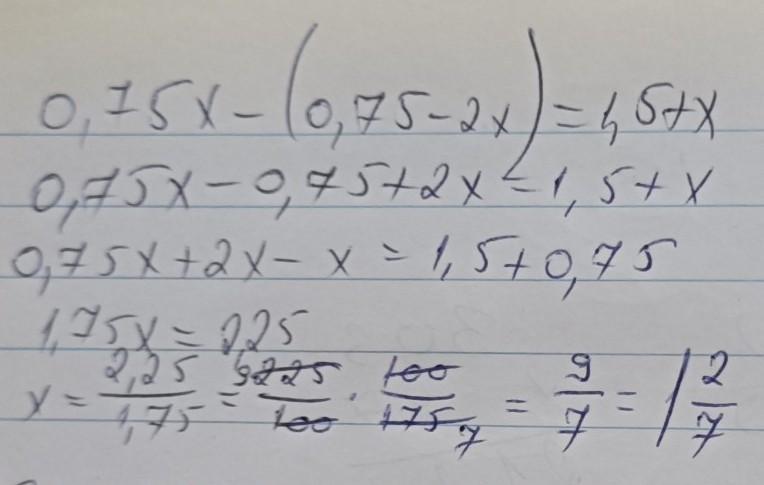 0,75x-(0,75-2x)=1,5+x
0,75x-0,75+2x=1,5+x
0,75x+2x-x=1,5+0,75
1,75x=2,25
x = 2,25/1,75 = 9 225/100 · 100/175 7 = 9/7 = 1 2/7